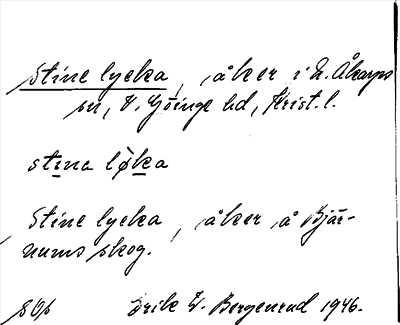 Stine lycka, åker i N. Åkarps
sn, V. Göinge hd, Krist. l.
stina løka
Stine lycka, åker å Bjär-
nums skog.
Erik W. Bergenrud 1946.